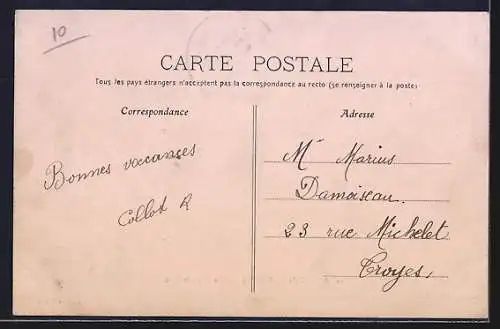 10
CARTE POSTALE
Tous les pays étrangers n'acceptent pas la correspondance au recto (se renseigner à la poste)
Correspondance
Bonnes vacances
Collot R
Adresse
Mr Marius
Damoiseau.
23 rue Michelet
Troyes.